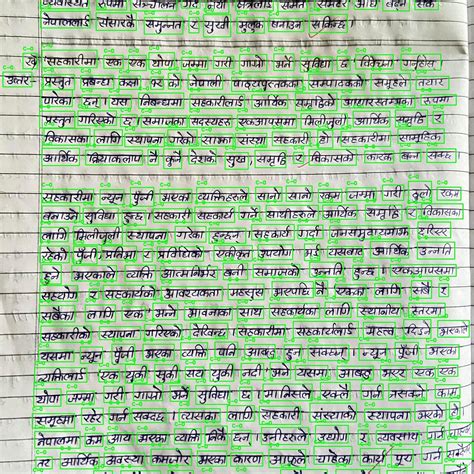 व्यवस्थित रूपमा सञ्चालन गर्दा
नेपाललाई संसारकै समुन्नत र सुखी मुलुक बनाउन सकिन्छ।
ख) सहकारीमा एक एक योग जम्मा गरी गाग्रो भर्ने सुविधा छ। विवेचना गर्नुहोस्।
उत्तर:- प्रस्तुत प्रबन्ध कक्षा १२ को नेपाली पाठ्यपुस्तकको सम्पादकको समूहले तयार
पारेका छन्। यस निबन्धमा सहकारीलाई आर्थिक समृद्धिको आधारस्तम्भका रूपमा
प्रस्तुत गरिएको छ। समाजका सदस्यहरू एकआपसमा मिलीजुली आर्थिक समृद्धि र
विकासका लागि स्थापना गरेको साझा संस्था सहकारी हो। सहकारीमा सामूहिक
आर्थिक क्रियाकलाप नै कुनै देशको सुख, समृद्धि र विकासको कारक बन्न सक्छ।
सहकारीमा न्यून पुँजी भएका व्यक्तिहरूले सानो सानो रकम जम्मा गरी ठूलो रकम
बनाउने सुविधा हुन्छ। सहकारी सहकार्य गर्ने साथीहरूले आर्थिक समृद्धि र विकासका
लागि मिलीजुली स्थापना गरेका हुन्छन्। सहकार्य गर्दा जनसमुदायमाझ छरिएर
रहेको पुँजी, प्रतिभा र प्रविधिको एकीकृत उपयोग भई यसबाट आर्थिक उन्नति
हुने भएकाले व्यक्ति आत्मनिर्भर बनी समाजको उन्नति हुन्छ। एकआपसमा
सहयोग र सहकार्यको आवश्यकता महसुस भएपछि नै एकका लागि सबै र
सबैका लागि एक भन्ने भावनाका साथ सहकार्यका लागि स्थानीय स्तरमा
सहकारीको स्थापना गरिएको देखिन्छ। सहकारीमा सहकार्यलाई महत्त्व दिइने भएकाले
यसमा न्यून पुँजी भएका व्यक्ति पनि आबद्ध हुन सक्छन्। न्यून पुँजी भएका
व्यक्तिलाई एक थुकी सुकी सय थुकी नदी भने यसमा आबद्ध भएर एक एक
योग जम्मा गरी गाग्रो भर्ने सुविधा छ। मानिसले एक्लै गर्न नसक्ने काम
समूहमा रहेर गर्न सक्दछ। त्यसका लागि सहकारी संस्थाको स्थापना भएको हो।
नेपालमा कम आय भएका व्यक्ति निकै छन्। उनीहरूले उद्योग र व्यवसाय गर्न चाहन्छन्
तर आर्थिक अवस्था कमजोर भएका कारण आफूले गरेका कार्य पूरा गर्न